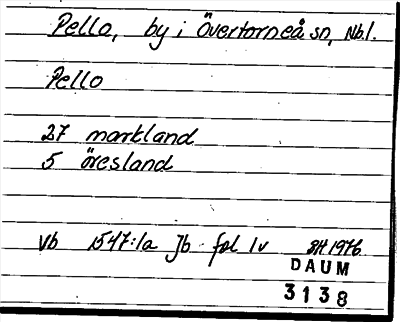 Pello, by i Övertorneå sn, Nbl.
Pello
27 markland
5 öresland
Vb 1547:1a Jb fol 1v SH 1976
DAUM
3138